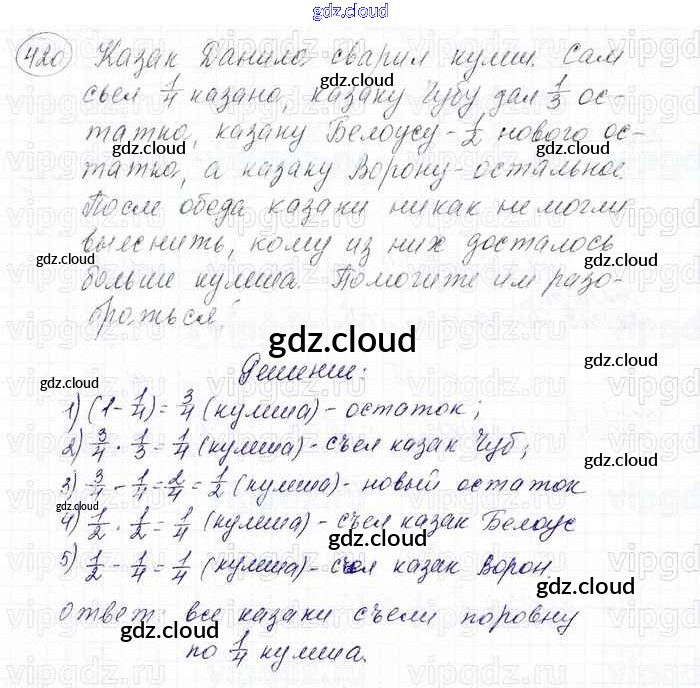 gdz.cloud
420) Казак Данило сварил кулиш. Сам
съел 1/4 казана, казаку Чубу дал 1/3 ос-
татка, казаку Белоусу - 1/2 нового ос-
татка, а казаку Ворону - остальное.
После обеда казаки никак не могли
выяснить, кому из них досталось
больше кулиша. Помогите им разо-
браться!
Решение:
1) (1 - 1/4) = 3/4 (кулиша) - остаток;
2) 3/4 · 1/3 = 1/4 (кулиша) - съел казак Чуб;
3) 3/4 - 1/4 = 2/4 = 1/2 (кулиша) - новый остаток
4) 1/2 · 1/2 = 1/4 (кулиша) - съел казак Белоус
5) 1/2 - 1/4 = 1/4 (кулиша) - съел казак Ворон
Ответ: все казаки съели поровну
по 1/4 кулиша.
gdz.cloud